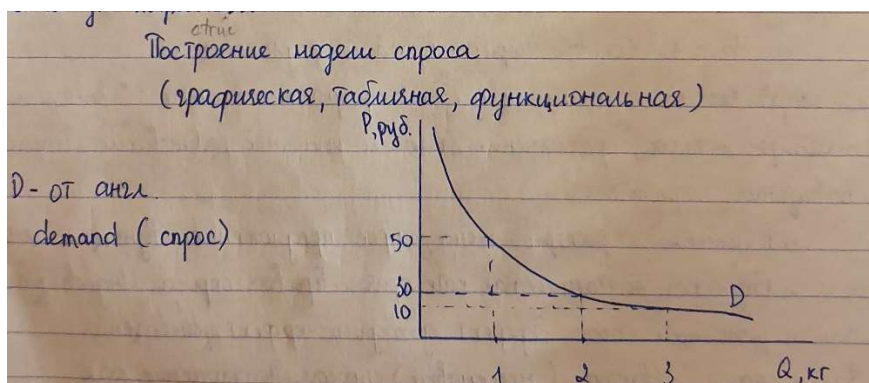 ctrûc
Построение модели спроса
(графическая, табличная, функциональная)
P, руб.
D - от англ.
demand (спрос)
50
30
10
D
1
2
3
Q, кг